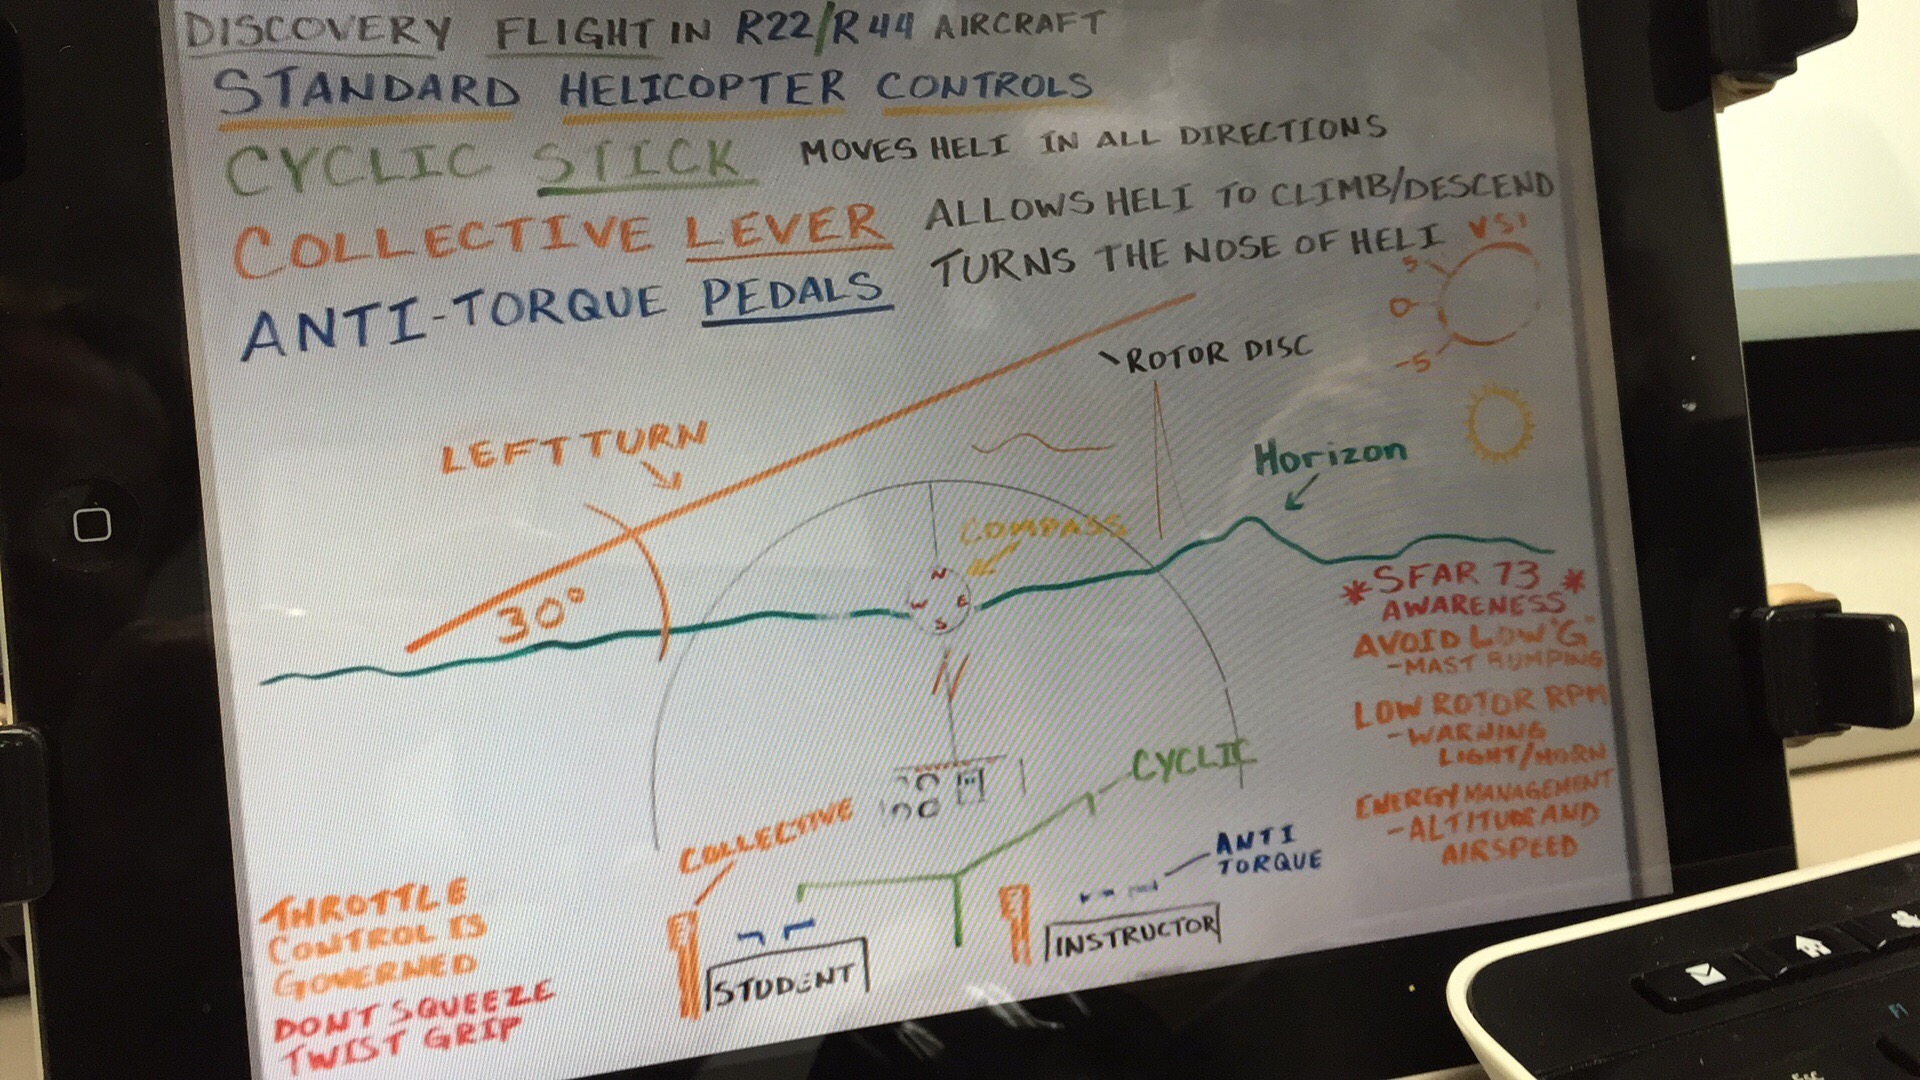 DISCOVERY FLIGHT IN R22/R44 AIRCRAFT
STANDARD HELICOPTER CONTROLS
CYCLIC STICK MOVES HELI IN ALL DIRECTIONS
COLLECTIVE LEVER ALLOWS HELI TO CLIMB/DESCEND
ANTI-TORQUE PEDALS TURNS THE NOSE OF HELI
VSI
5
0
-5
ROTOR DISC
LEFT TURN
Horizon
COMPASS
N
W E
S
30°
*SFAR 73*
AWARENESS
AVOID LOW "G"
-MAST BUMPING
LOW ROTOR RPM
-WARNING
LIGHT/HORN
ENERGY MANAGEMENT
-ALTITUDE AND
AIRSPEED
CYCLIC
COLLECTIVE
ANTI
TORQUE
STUDENT
INSTRUCTOR
THROTTLE
CONTROL IS
GOVERNED
DONT SQUEEZE
TWIST GRIP
F1